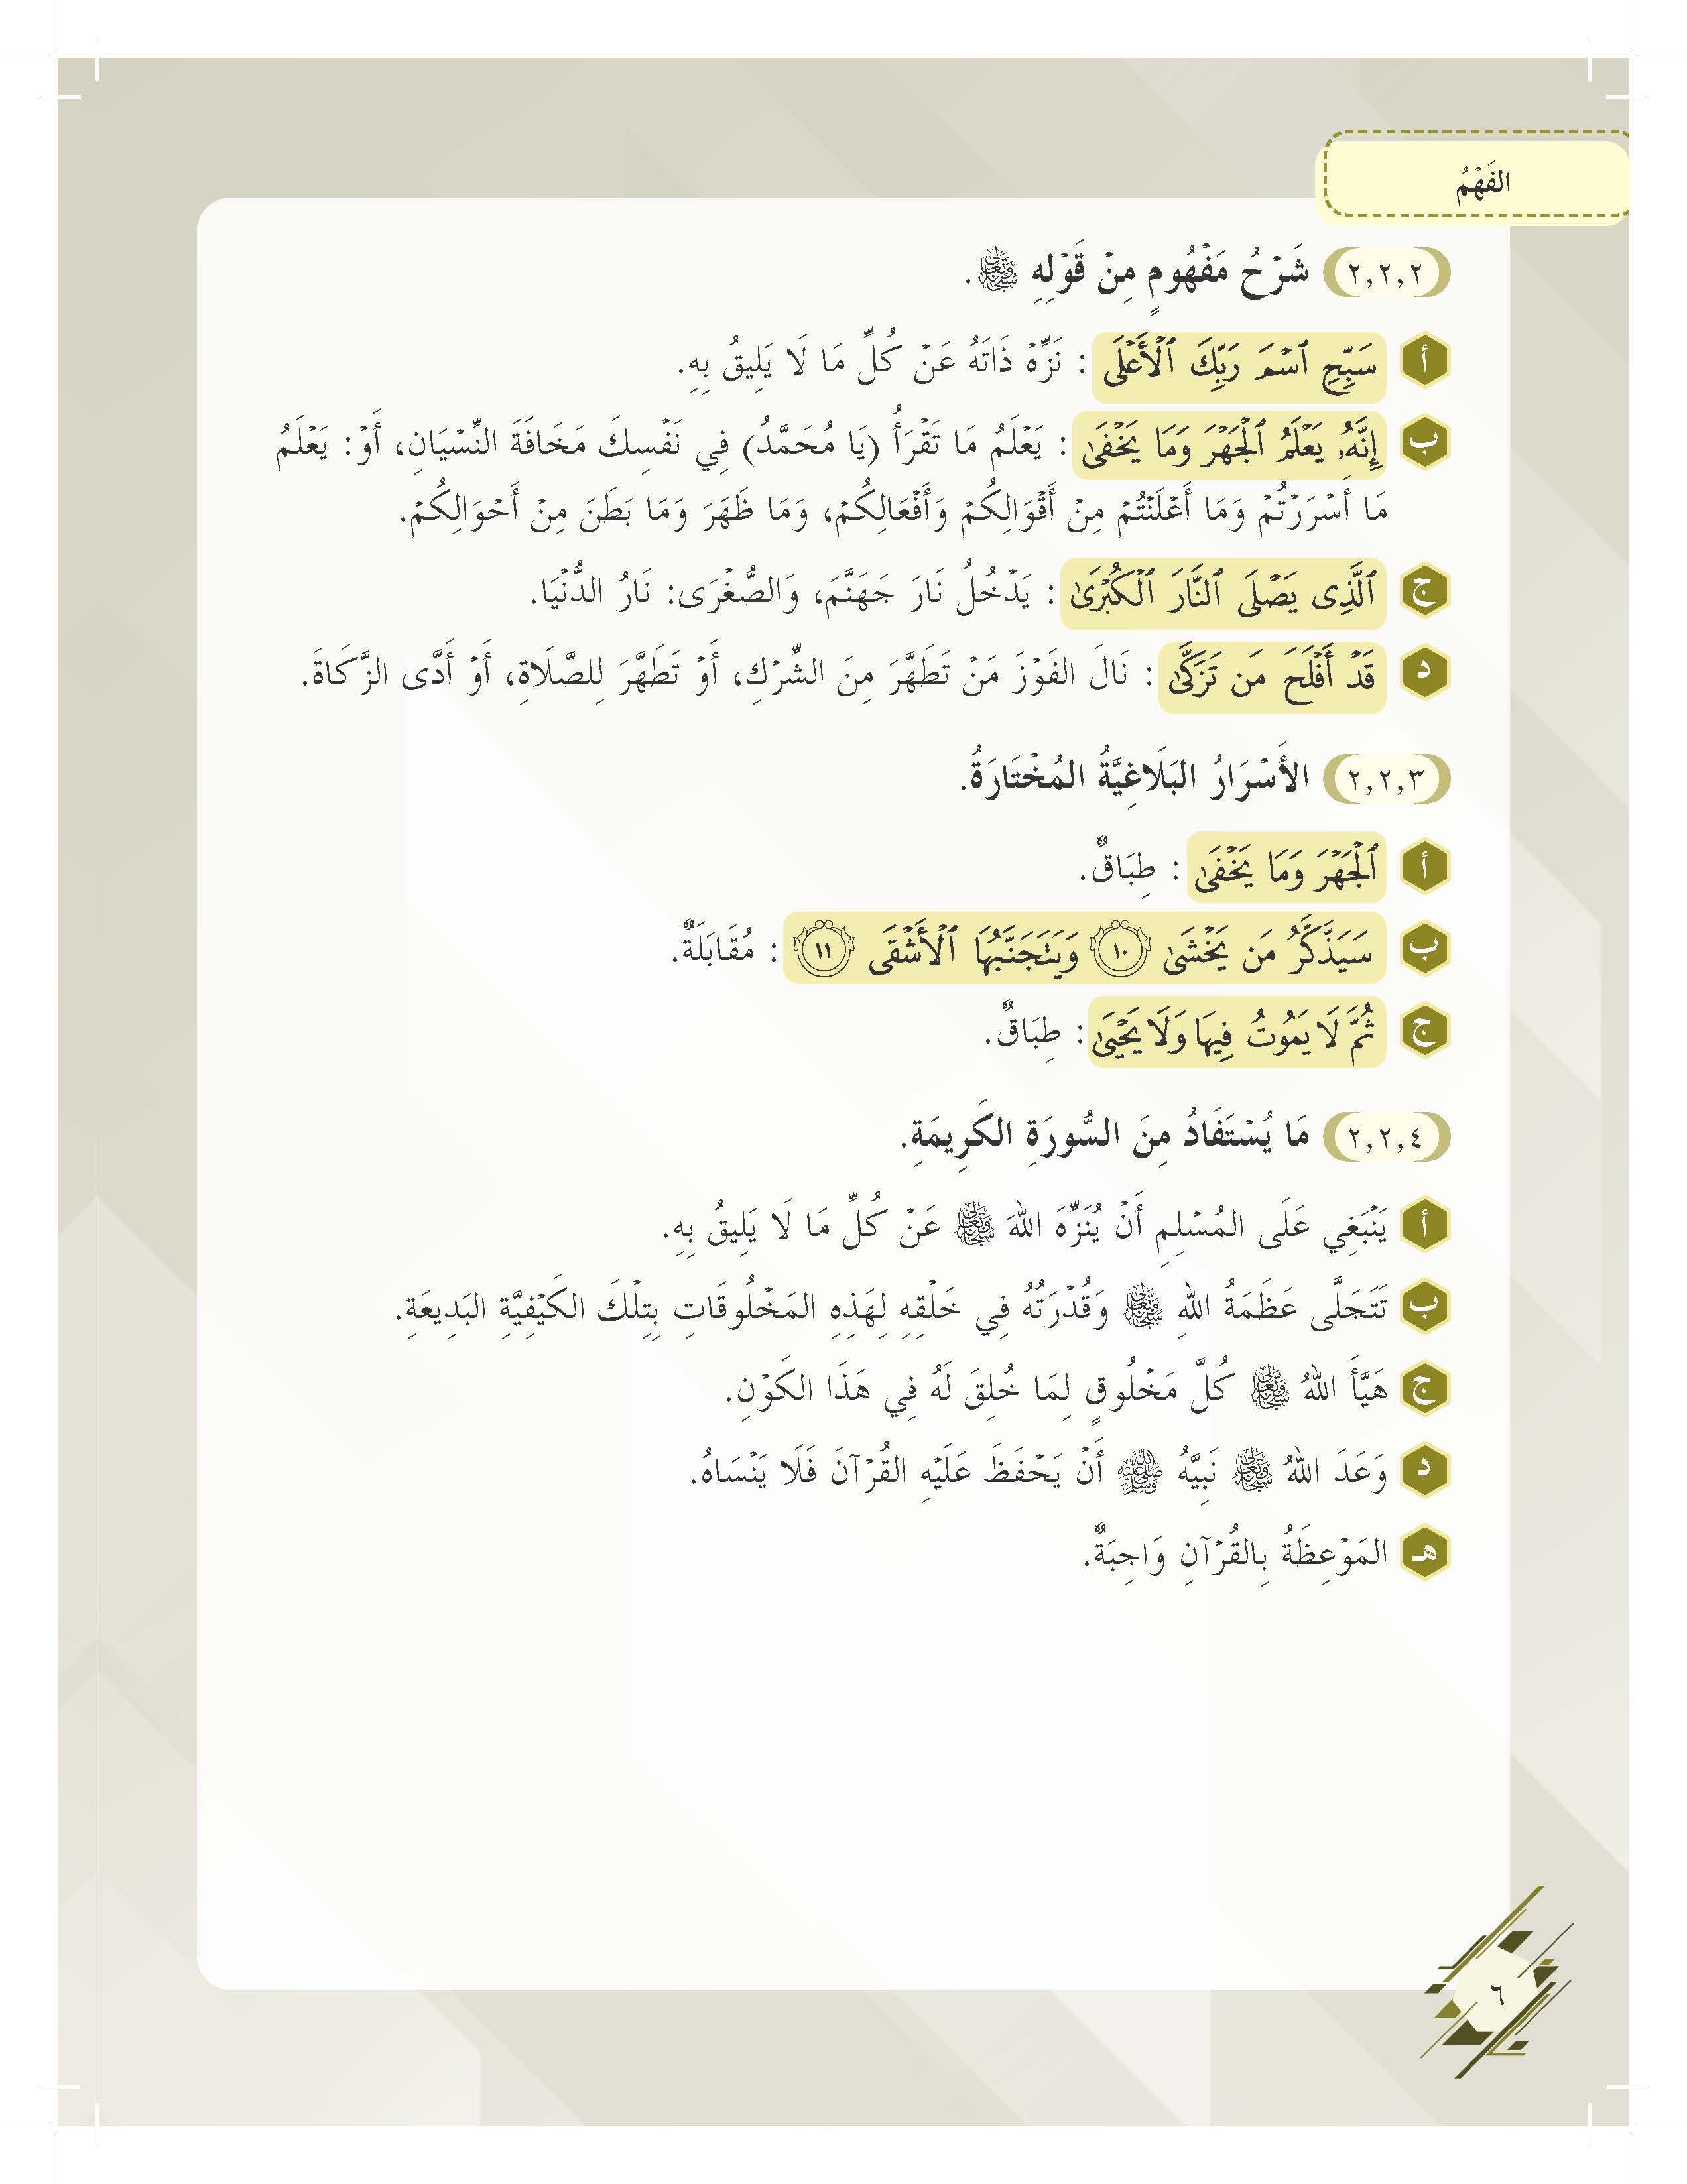 الفَهْمُ
٢,٢,٢ شَرْحُ مَفْهُومٍ مِنْ قَوْلِهِ ﷻ.
أ سَبِّحِ ٱسْمَ رَبِّكَ ٱلْأَعْلَى : نَزِّهْ ذَاتَهُ عَنْ كُلِّ مَا لَا يَلِيقُ بِهِ.
ب إِنَّهُۥ يَعْلَمُ ٱلْجَهْرَ وَمَا يَخْفَىٰ : يَعْلَمُ مَا تَقْرَأُ (يَا مُحَمَّدُ) فِي نَفْسِكَ مَخَافَةَ النِّسْيَانِ، أَوْ: يَعْلَمُ
مَا أَسْرَرْتُمْ وَمَا أَعْلَنْتُمْ مِنْ أَقْوَالِكُمْ وَأَفْعَالِكُمْ، وَمَا ظَهَرَ وَمَا بَطَنَ مِنْ أَحْوَالِكُمْ.
ج ٱلَّذِى يَصْلَى ٱلنَّارَ ٱلْكُبْرَىٰ : يَدْخُلُ نَارَ جَهَنَّمَ، وَالصُّغْرَى: نَارُ الدُّنْيَا.
د قَدْ أَفْلَحَ مَن تَزَكَّىٰ : نَالَ الفَوْزَ مَنْ تَطَهَّرَ مِنَ الشِّرْكِ، أَوْ تَطَهَّرَ لِلصَّلَاةِ، أَوْ أَدَّى الزَّكَاةَ.
٢,٢,٣ الأَسْرَارُ البَلَاغِيَّةُ المُخْتَارَةُ.
أ ٱلْجَهْرَ وَمَا يَخْفَىٰ : طِبَاقٌ.
ب سَيَذَّكَّرُ مَن يَخْشَىٰ ١٠ وَيَتَجَنَّبُهَا ٱلْأَشْقَى ١١ : مُقَابَلَةٌ.
ج ثُمَّ لَا يَمُوتُ فِيهَا وَلَا يَحْيَىٰ : طِبَاقٌ.
٢,٢,٤ مَا يُسْتَفَادُ مِنَ السُّورَةِ الكَرِيمَةِ.
أ يَنْبَغِي عَلَى المُسْلِمِ أَنْ يُنَزِّهَ اللهَ ﷻ عَنْ كُلِّ مَا لَا يَلِيقُ بِهِ.
ب تَتَجَلَّى عَظَمَةُ اللهِ ﷻ وَقُدْرَتُهُ فِي خَلْقِهِ لِهَذِهِ المَخْلُوقَاتِ بِتِلْكَ الكَيْفِيَّةِ البَدِيعَةِ.
ج هَيَّأَ اللهُ ﷻ كُلَّ مَخْلُوقٍ لِمَا خُلِقَ لَهُ فِي هَذَا الكَوْنِ.
د وَعَدَ اللهُ ﷻ نَبِيَّهُ ﷺ أَنْ يَحْفَظَ عَلَيْهِ القُرْآنَ فَلَا يَنْسَاهُ.
هـ المَوْعِظَةُ بِالقُرْآنِ وَاجِبَةٌ.
٦